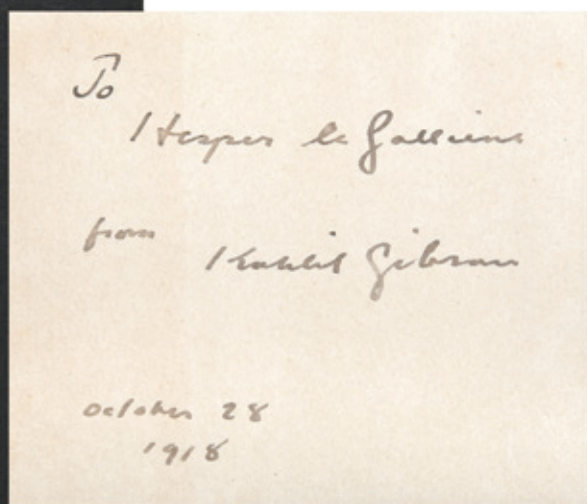 To
Hesper le Gallienne
from
Kahlil Gibran
October 28
1918